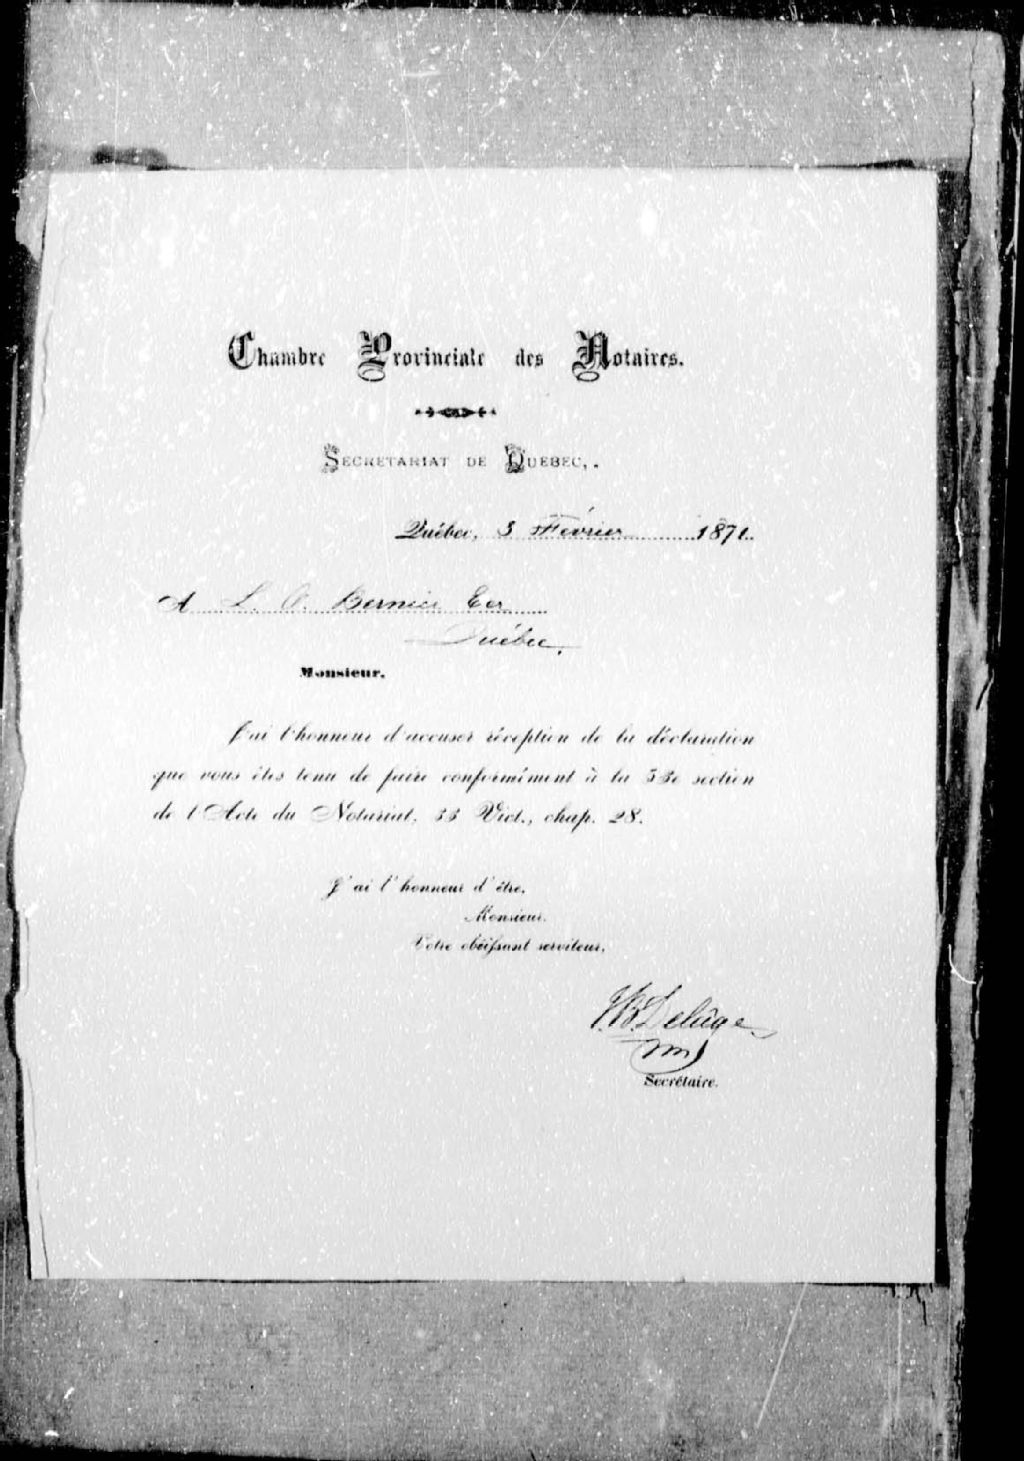 Chambre Provinciale des Notaires.
SECRETARIAT DE QUEBEC,.
Québec, 3 Février 1871.
A L. O. Bernier Ecr
Québec.
Monsieur.
J'ai l'honneur d'accuser réception de la déclaration
que vous êtes tenu de faire conformément à la 53e section
de l'Acte du Notariat, 33 Vict., chap. 28.
J'ai l'honneur d'être,
Monsieur.
Votre obéissant serviteur,
Delâge
Secrétaire.